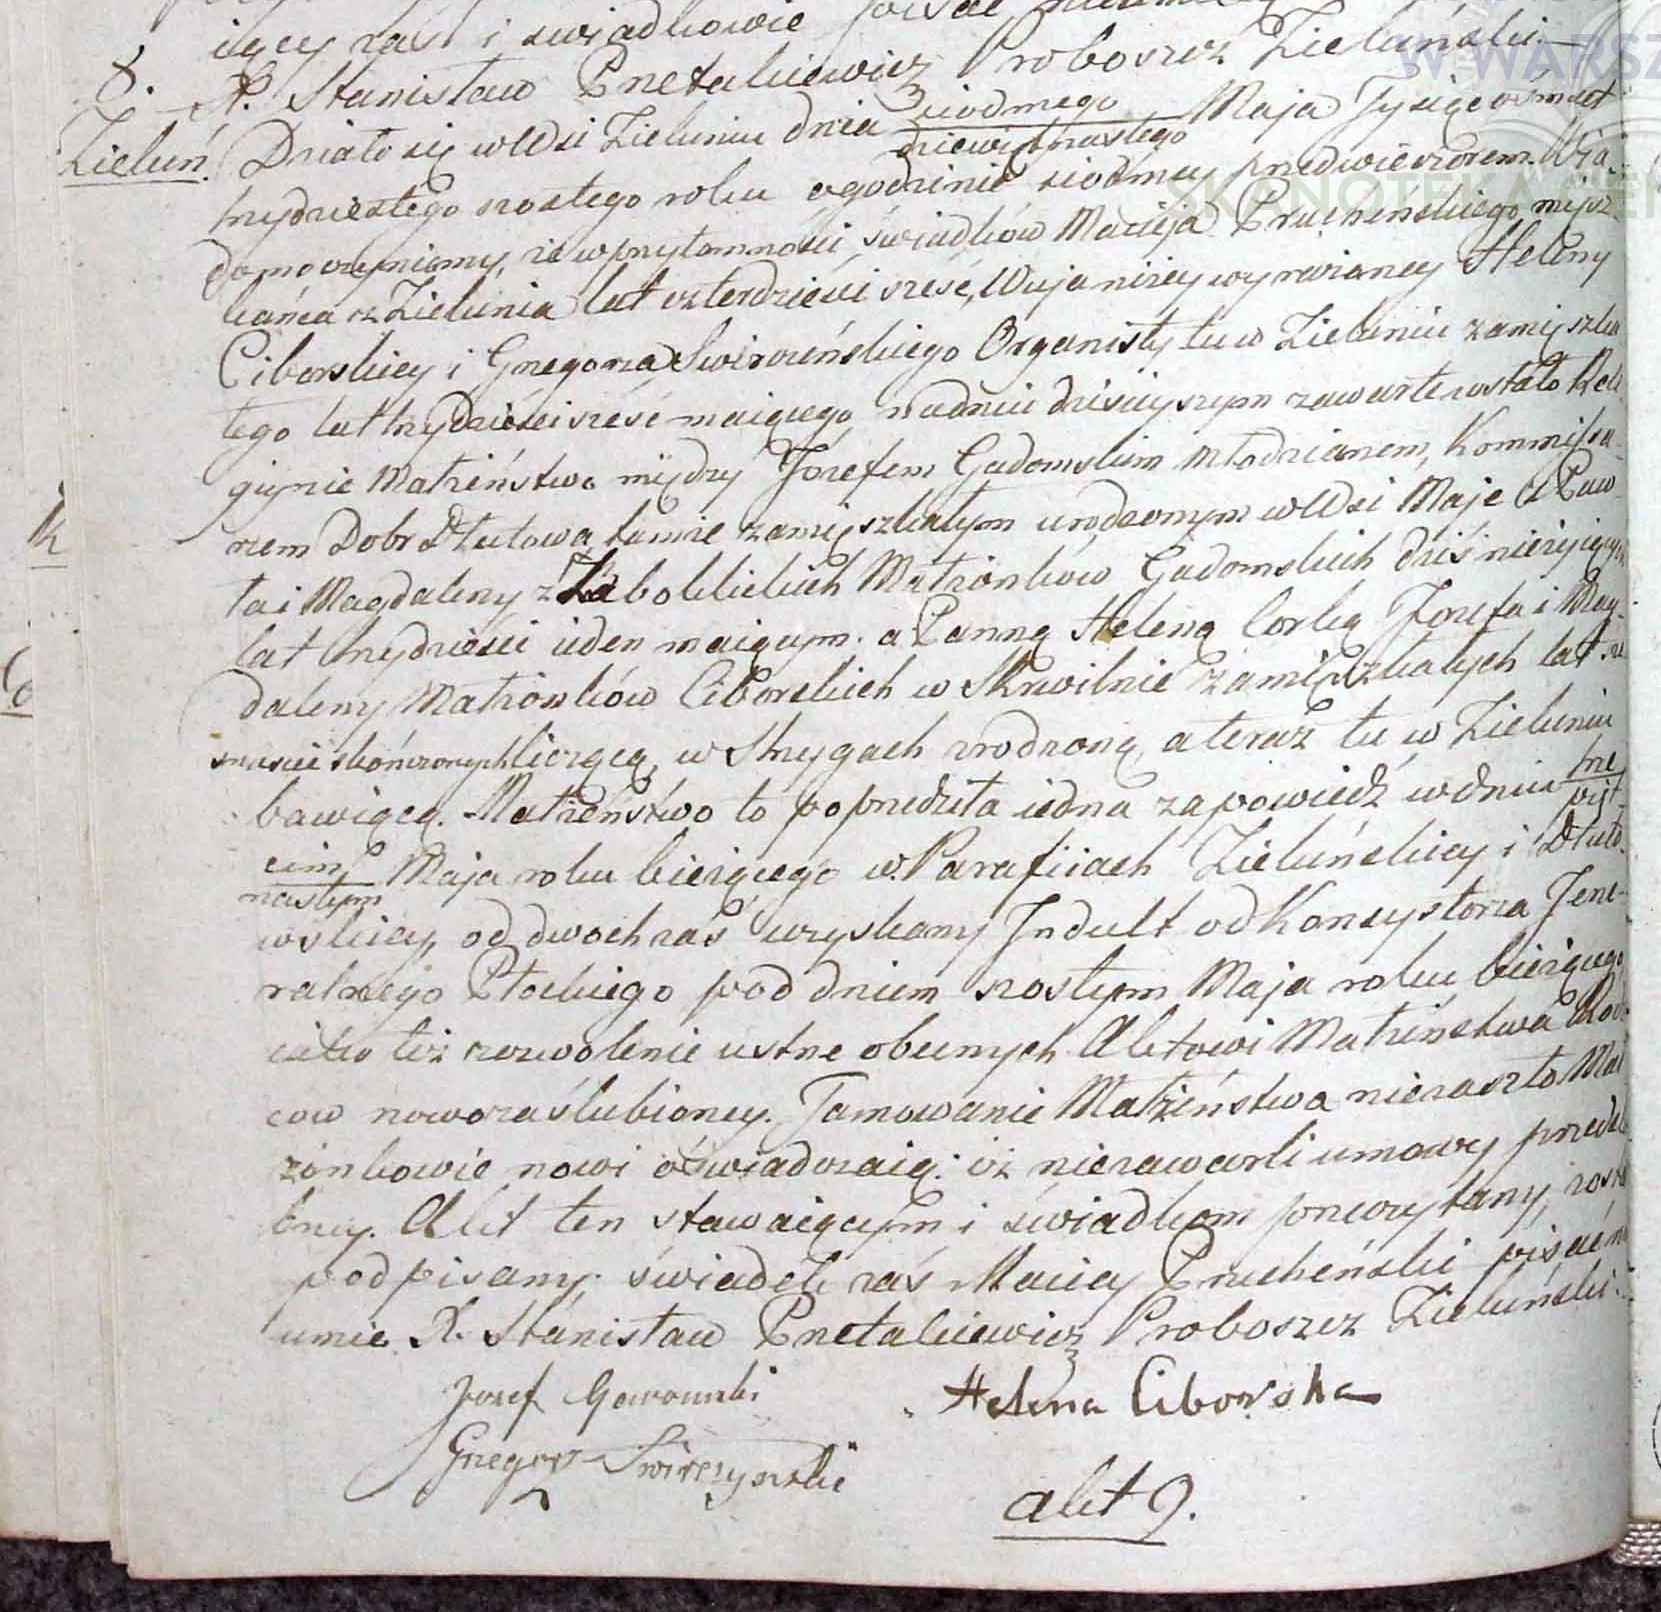 iący zaś i swiadkowie pisać
8. X. Stanisław Pretakiewicz Proboszcz Zieluński.
Zieluń. Działo się w Wsi Zieluniu dnia siodmego / dziewiętnastego Maja Tysiąc ośmset
trzydziestego szostego roku o godzinie siodmey przed wieczorem. Wia-
domo czyniemy, że w przytomności świadków Macieja Prucheńskiego, miesz-
kańca z Zielunia lat czterdzieści sześć, Wuja niżey wyrażaney Heleny
Ciborskiey i Grzegorza Swirczeńskiego Organisty tu w Zieluniu zamięszka
tego lat trzydzieści sześć maiącego, w dniu dzisieyszym zawarte zostało Reli
giynie Małżeństwo między Józefem Gadomskim Młodzianem, Kommissa-
rzem Dobr Dłutowa, tamże zamięszkałym urodzonym w Wsi Maje z Paw
ła i Magdaleny z Zaboklickich Małżonków Gadomskich dziś nieżyiących
lat trzydzieści ieden maiącym. a Panną Heleną Corką Jozefa i Mag
daleny Małżonków Ciborskich w Skrwilnie zamięszkałych lat sze
snaście skończonych liczącą, w Strzygach zrodzoną, a teraz tu w Zieluniu
bawiącą. Małżeństwo to poprzedziła iedna zapowiedź w dniu trze / pięt
cim / nastym Maja roku bieżącego w Parafiiach Zieluńskiey i Dłuto-
wskiey, od dwoch zaś uzyskany Indult od Konsystorza Jene-
ralnego Płockiego pod dniem szostym Maja roku bieżącego
iako też zezwolenie ustne obecnych Aktowi Małżeństwa Rodzi
cow nowozaślubioney. Tamowanie Małżeństwa niezaszło Mał
żonkowie nowi oświadczaią: iż niezawarli umowy przedśl
bney. Akt ten stawaiącym i świadkom przeczytany, zost
podpisany. świadek zaś Maciey Prucheński pisać n
umie. X. Stanisław Pretakiewicz Proboszcz Zieluński.
Jozef Gadomski Helena Ciborska
Grzegorz Swirczynski
akt 9.
W WARSZ
SKANOTEKA GEN